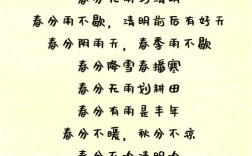 春分雨不歇，清明前后有好天
春分阴雨天，春季雨不歇
春分降雪春播寒
春分无雨划耕田
春分有雨是丰年
春分不暖，秋分不凉
春分不冷清明冷